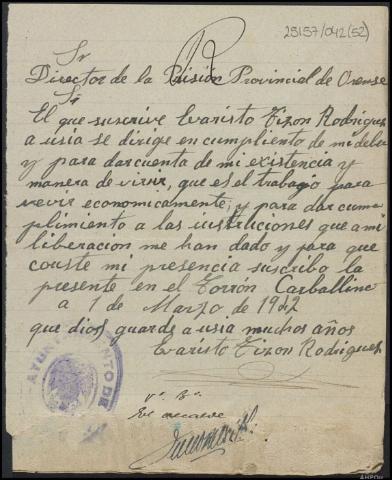 25157/042(52)
Sr
Director de la Prisión Provincial de Orense
Sr
El que suscrive Evaristo Tizon Rodriguez
a usia se dirige en cumpliento de mi deber
y para dar cuenta de mi existencia y
manera de vivir, que es el trabago para
vevir economicamente, y para dar cum-
plimiento a las instruciones que a mi
liberacion me han dado y para que
conste mi presencia suscribo la
presente en el Torron Carballino
a 1 de Marzo de 1942
que dios guarde a usia muchos años
Evaristo Tizon Rodriguez
AYUNTAMIENTO DE
Vº Bº
El alcalde
AHPOU